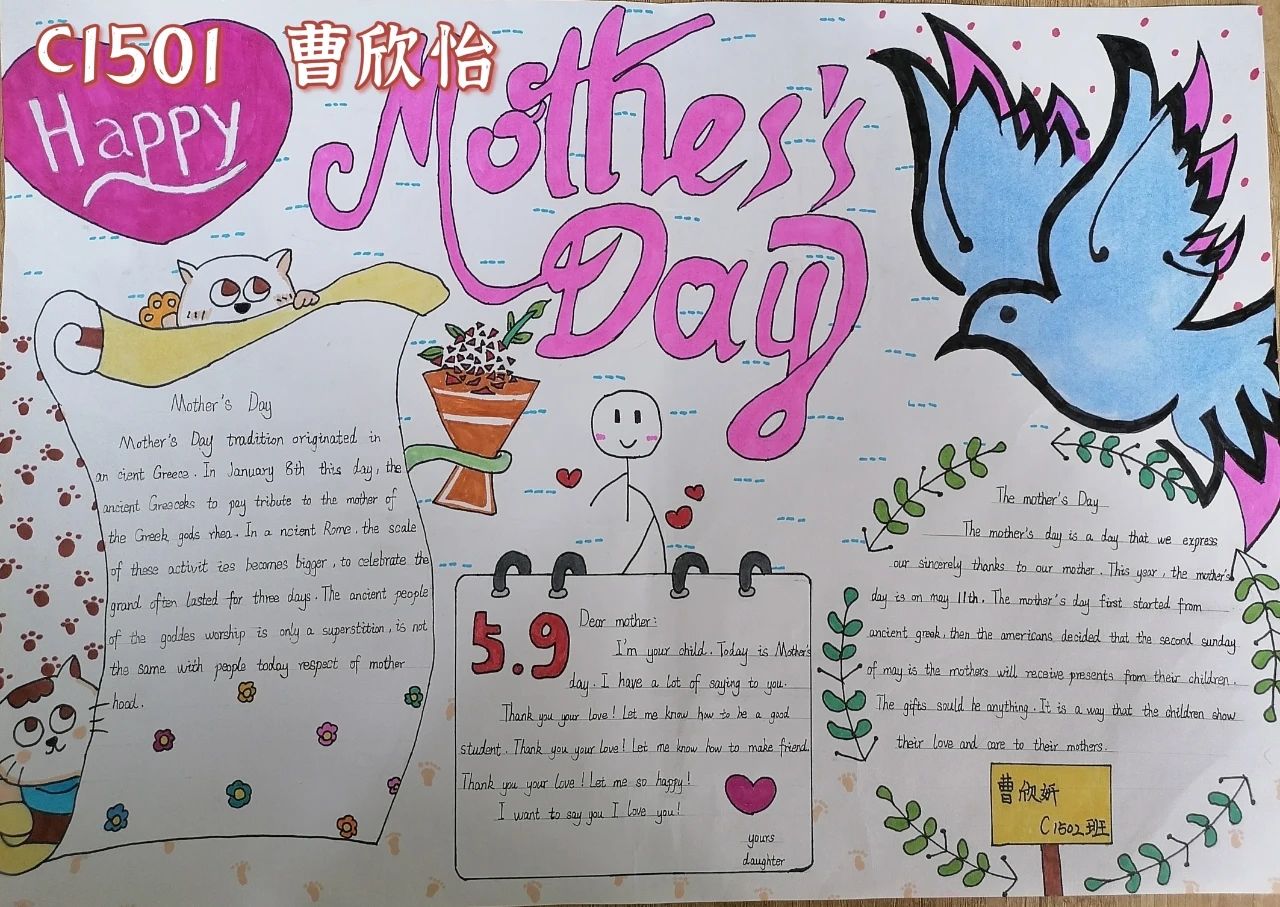 C1501 曹欣怡
Happy
Mother's
Day
Mother's Day
Mother's Day tradition originated in
an cient Greece. In January 8th this day, the
ancient Greeceks to pay tribute to the mother of
the Greek gods rhea. In a ncient Rome. the scale
of these activit ies becomes bigger, to celebrate the
grand often lasted for three days. The ancient people
of the goddes worship is only a superstition, is not
the same with people today respect of mother
hood.
5.9
Dear mother:
I'm your child. Today is Mother's
day. I have a lot of saying to you.
Thank you your love! Let me know how to be a good
student. Thank you your love! Let me know how to make friend.
Thank you your love! Let me so happy!
I want to say you I love you!
yours
daughter
The mother's Day
The mother's day is a day that we express
our sincerely thanks to our mother. This year, the mother's
day is on may 11th. The mother's day first started from
ancient greek, then the americans decided that the second sunday
of may is the mothers will receive presents from their children.
The gifts sould be anything. It is a way that the children show
their love and care to their mothers.
曹欣妍
C1502班